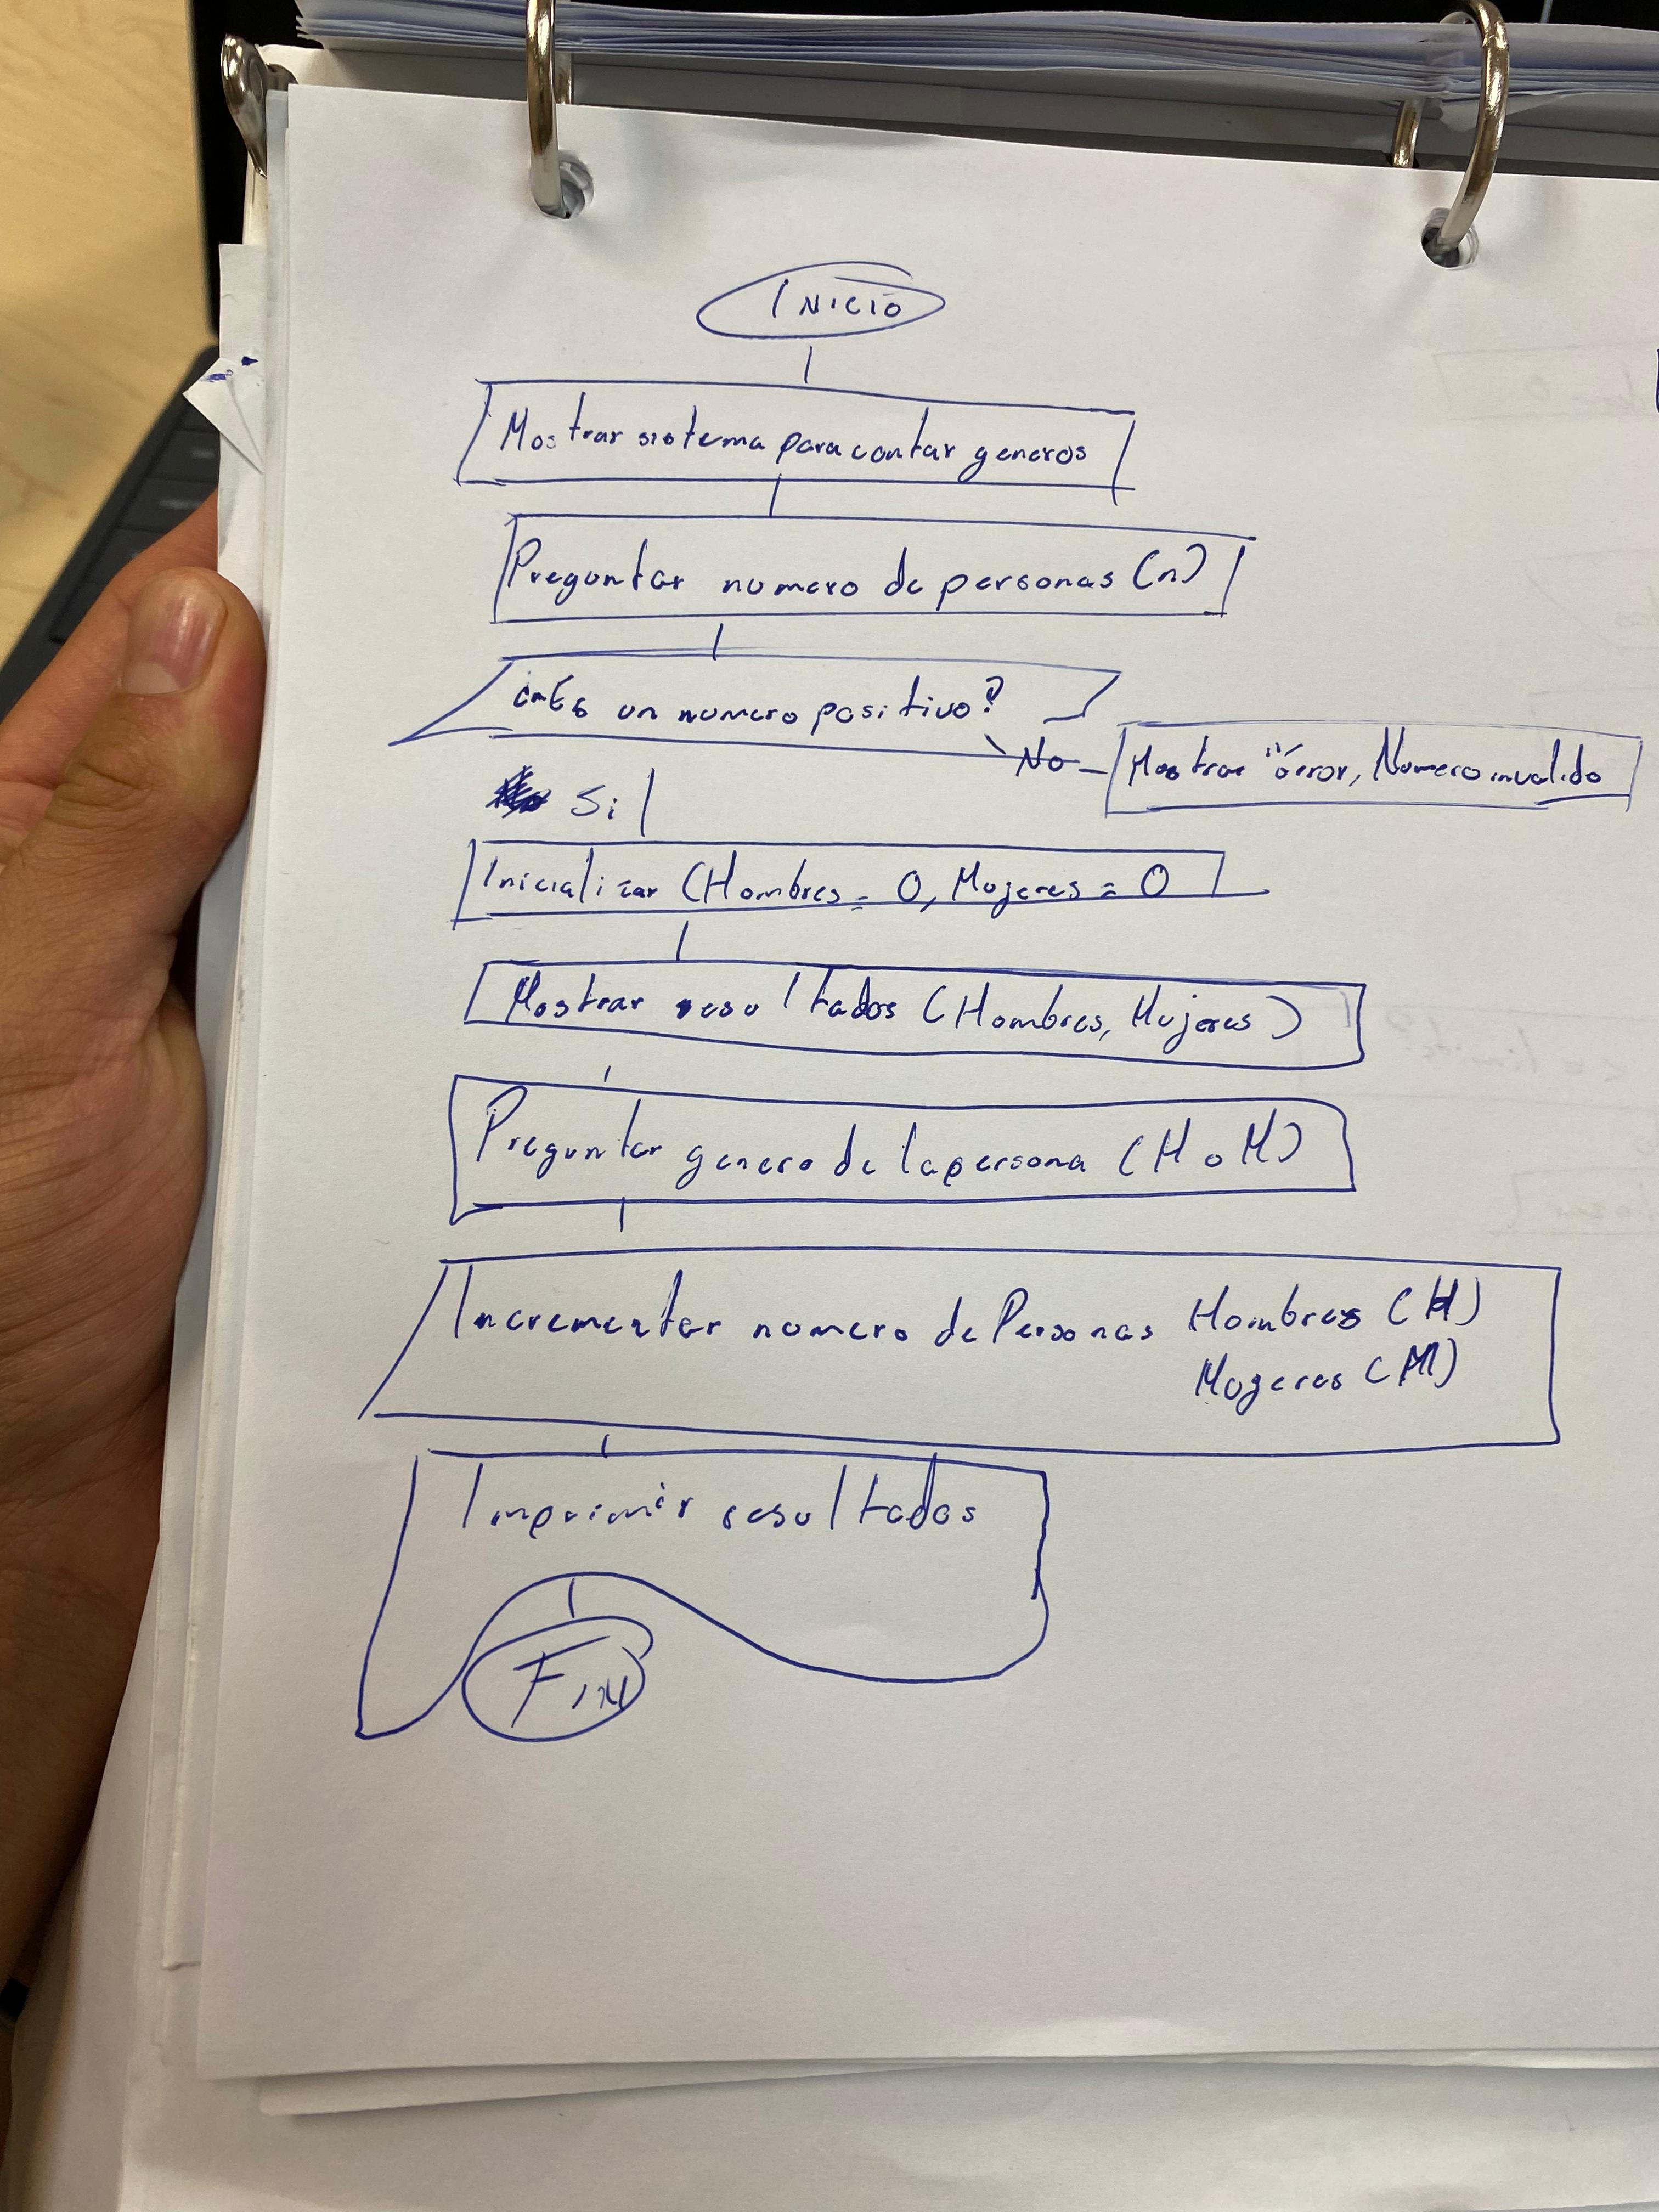 INICIO
Mostrar sistema para contar generos
Preguntar numero de personas (n)
¿Es un numero positivo?
No
Mostrar "error, Numero invalido
Si
Inicializar (Hombres = 0, Mujeres = 0
Mostrar resultados (Hombres, Mujeres)
Preguntar genero de la persona (H o M)
Incrementar numero de Personas Hombres (H)
Mugeres (M)
Imprimir resultados
FIN